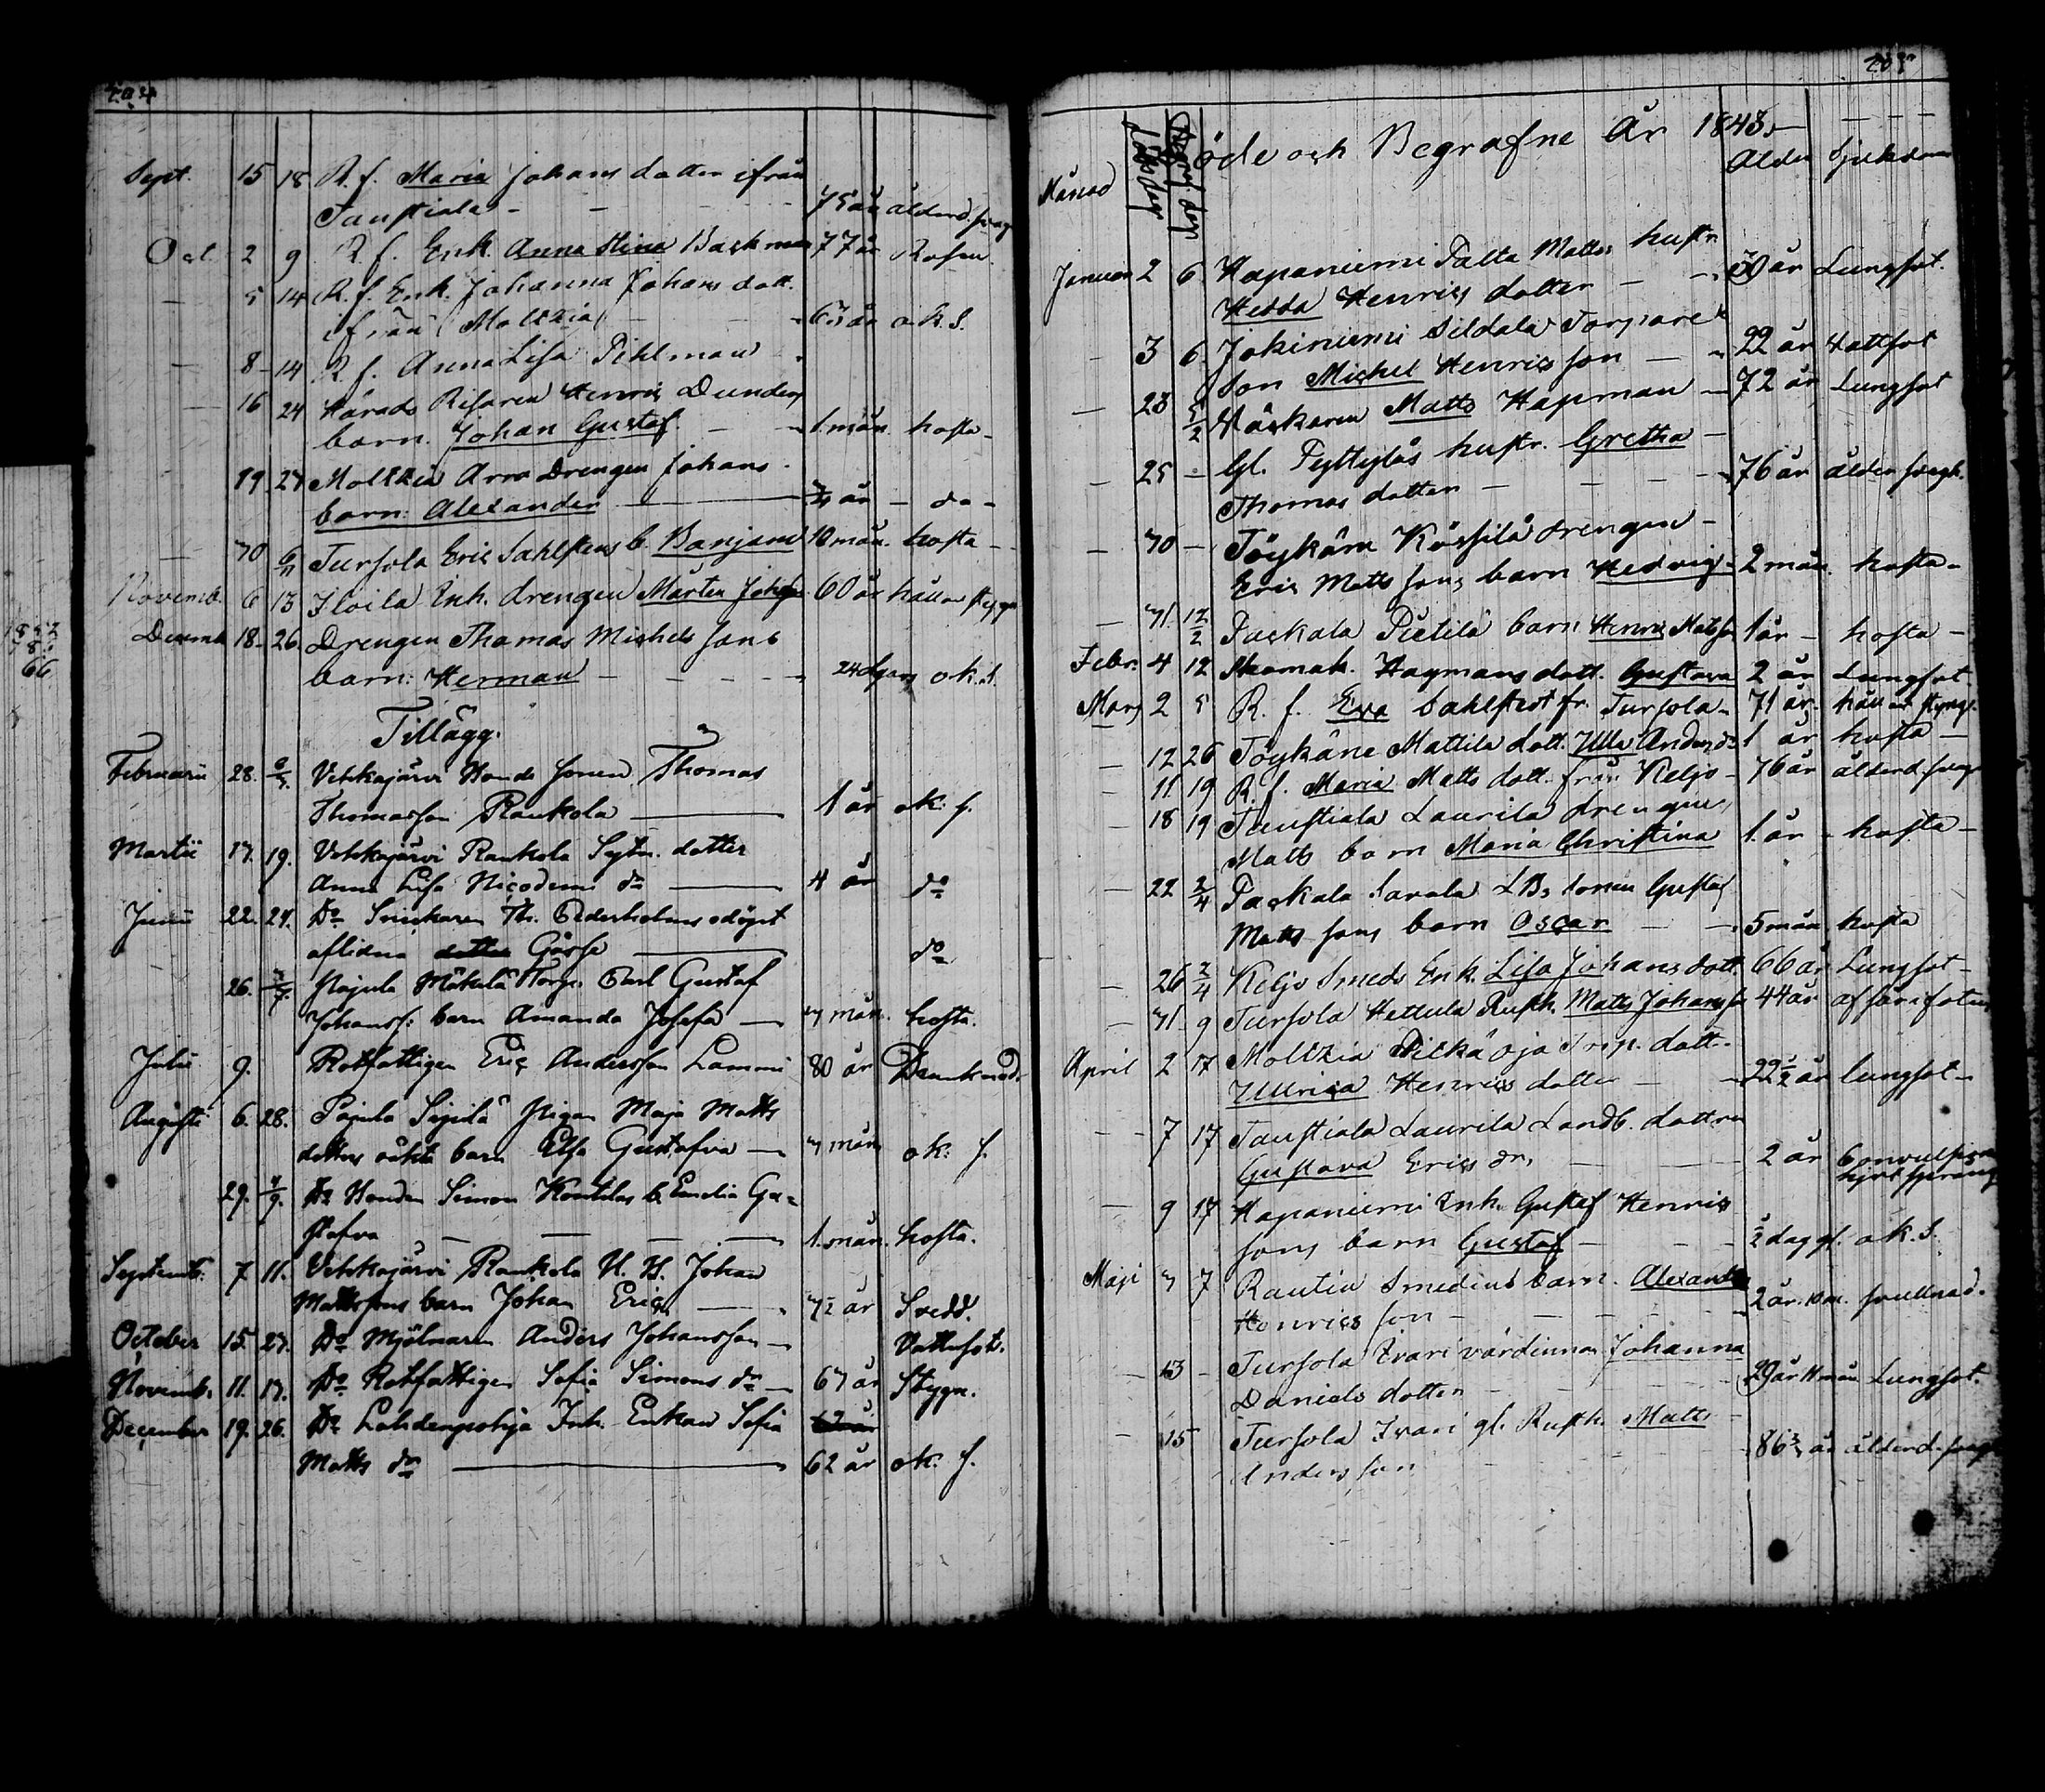 204
Sept. 15 18 R. f. Maria Johans dotter ifrån
Taustiala - - - 75 år ålderd. svag
Oct. 2 9 R. f. Enk. Anna Stina Backman 77 år Rosen.
- 5 14 R. f. Enk. Johanna Johans dott.
ifrån Moltzia - 63 år o.k.S.
- 8 - 14 R. f. Anna Lisa Pihlman
16 24 Härads Risaren Henric Dunders
barn. Johan Gustaf. - - 1 mån. hosta -
19. 27 Moltzia Arra Drengen Johans
barn: Alexander - 3/4 år - do -
- 30 6/11 Tursola Eric Sahlstens b. Banjam 10 mån. hosta -
Novemb. 6 13 Iloila Inh. drengen Mårten Johans 60 år håll o. stygn
Decemb. 18 - 26. Drengen Thomas Michels sons
barn: Herman - - - - 24 dygn o.k.S.
Tillägg.
Februarii 28. 6/3. Vehkajärvi Honda Sonen Thomas
Thomasson Rankola - 1 år ok: s.
Martii 17. 19. Vehkajärvi Rankola Sytn. dotter
Anna Lisa Nicodemi dr - 4 år do
Junii 22. 24. Do Snickaren Th. Cederholms odöpt
aflidna dotter Gosse - do
26. 3/7. Pajula Mäkelä Torp. Carl Gustaf
Johanss: barn Amanda Josefa - 3 mån. hosta.
Julii 9. Rotfattigen Eric Andersson Lammi 80 år
Augusti 6. 28. Pajula Seppilä Pigan Maja Matts
dotters oäkta barn Elsa Gustafva - 3 mån ok: s.
29. 4/9. Do Honden Simon Konttilas b. Emelia Gu-
stafva - - - - 1. mån. hosta.
Septemb. 7. 11. Vehkajärvi Rankola H. H. Johan
Mattssons barn Johan Eric - 3 1/2 år Svedd.
October 15. 23. Do Mjölnaren Anders Johansson - Vattusot.
Novemb. 11. 13. Do Rotfattigen Sofia Simons dr - 67 år Stygn.
December 19. 26. Do Lahdenpohja Inh. Enkan Sofia
Matts dr - 62 år ok. s.
205
Döde och Begrafne År 1843.
Månad Döds dag Begr. dag Ålder Sjukdom
Januari 2 6 Haponiemi Palta Matts hustr.
Hedda Henrics dotter - - 50 år Lungsot.
- 3 6 Jokiniemi Sildala Torpare
Son Michel Henricsson - - 22 år Vattsot
- 23 5/2 Väskaren Matts Hapman - 72 år Lungsot
- 25 - Gl. Pyttylås hustr. Gretha -
Thomas dotter - - - 76 år ålder svagh.
- 30 - Töykäm Kössilä drengen -
Eric Matts sons barn Hedvig - 2 mån. hosta -
- 31. 12/2 Packala Pietilä barn Henric Matsson 1 år - hosta -
Febr. 4 12 Skomak. Hagmans dott. Gustava 2 år Lungsot
Mars 2 5 R. f. Eva Sahlstedt fr. Tursola - 71 år. håll och styng.
- 12 26 Töykäne Mattila dott. Ulla Anders dr 1 år hosta -
- 11 19 R. f. Maria Matts dott. från Keljo - 76 år ålderd. svagh
- 18 19 Taustiala Laurila drengen,
Matts barn Maria Christina 1. år - hosta -
- 22 2/4 Packala Savala LBs Sonen Gustaf
Matts sons barn Oscar - - 5 mån hosta
- 26 2/4 Keljo Smeds Enk. Lisa Johans dott. 66 år Lungsot -
- 31 - 9 Tursola Hettula Rusth. Matts Johansson 44 år af sår i foten
April 2 17 Moltzia Pitkä oja Torp. dott.
Ullrica Henrics dotter - - 22 1/2 år lungsot -
- 7 17 Taustiala Laurila Landb. dottren
Gustava Erics dr, - - 2 år Convulsion
hjertsprång
- 9 17 Haponiemi Inh. Gustaf Henrics
sons barn Gustaf - - - 1/2 dag gl. o.k.S.
Maji 3 7 Rautia Smedens barn. Alexander
Henrics son - - - 2 år. 10 m. svullnad.
- 13 - Tursola Ivari värdinnan Johanna
Daniels dotter - - - 29 år 11 mån Lungsot.
- 15 Tursola Ivari gl. Rusth. Matts -
Andersson - - - 86 3/4 år ålderd. svagh